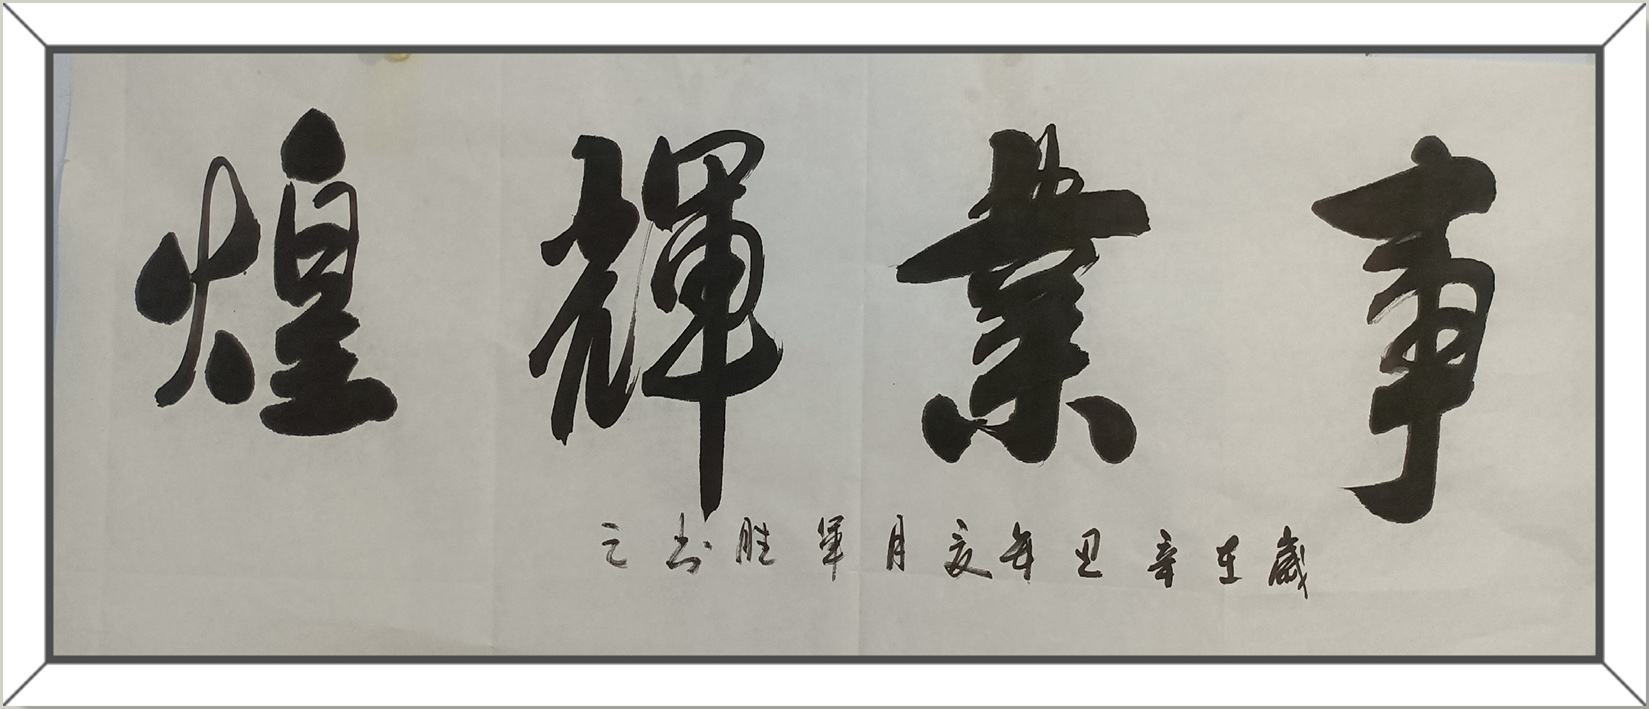 事業輝煌
歲在辛丑年亥月軍胜书之